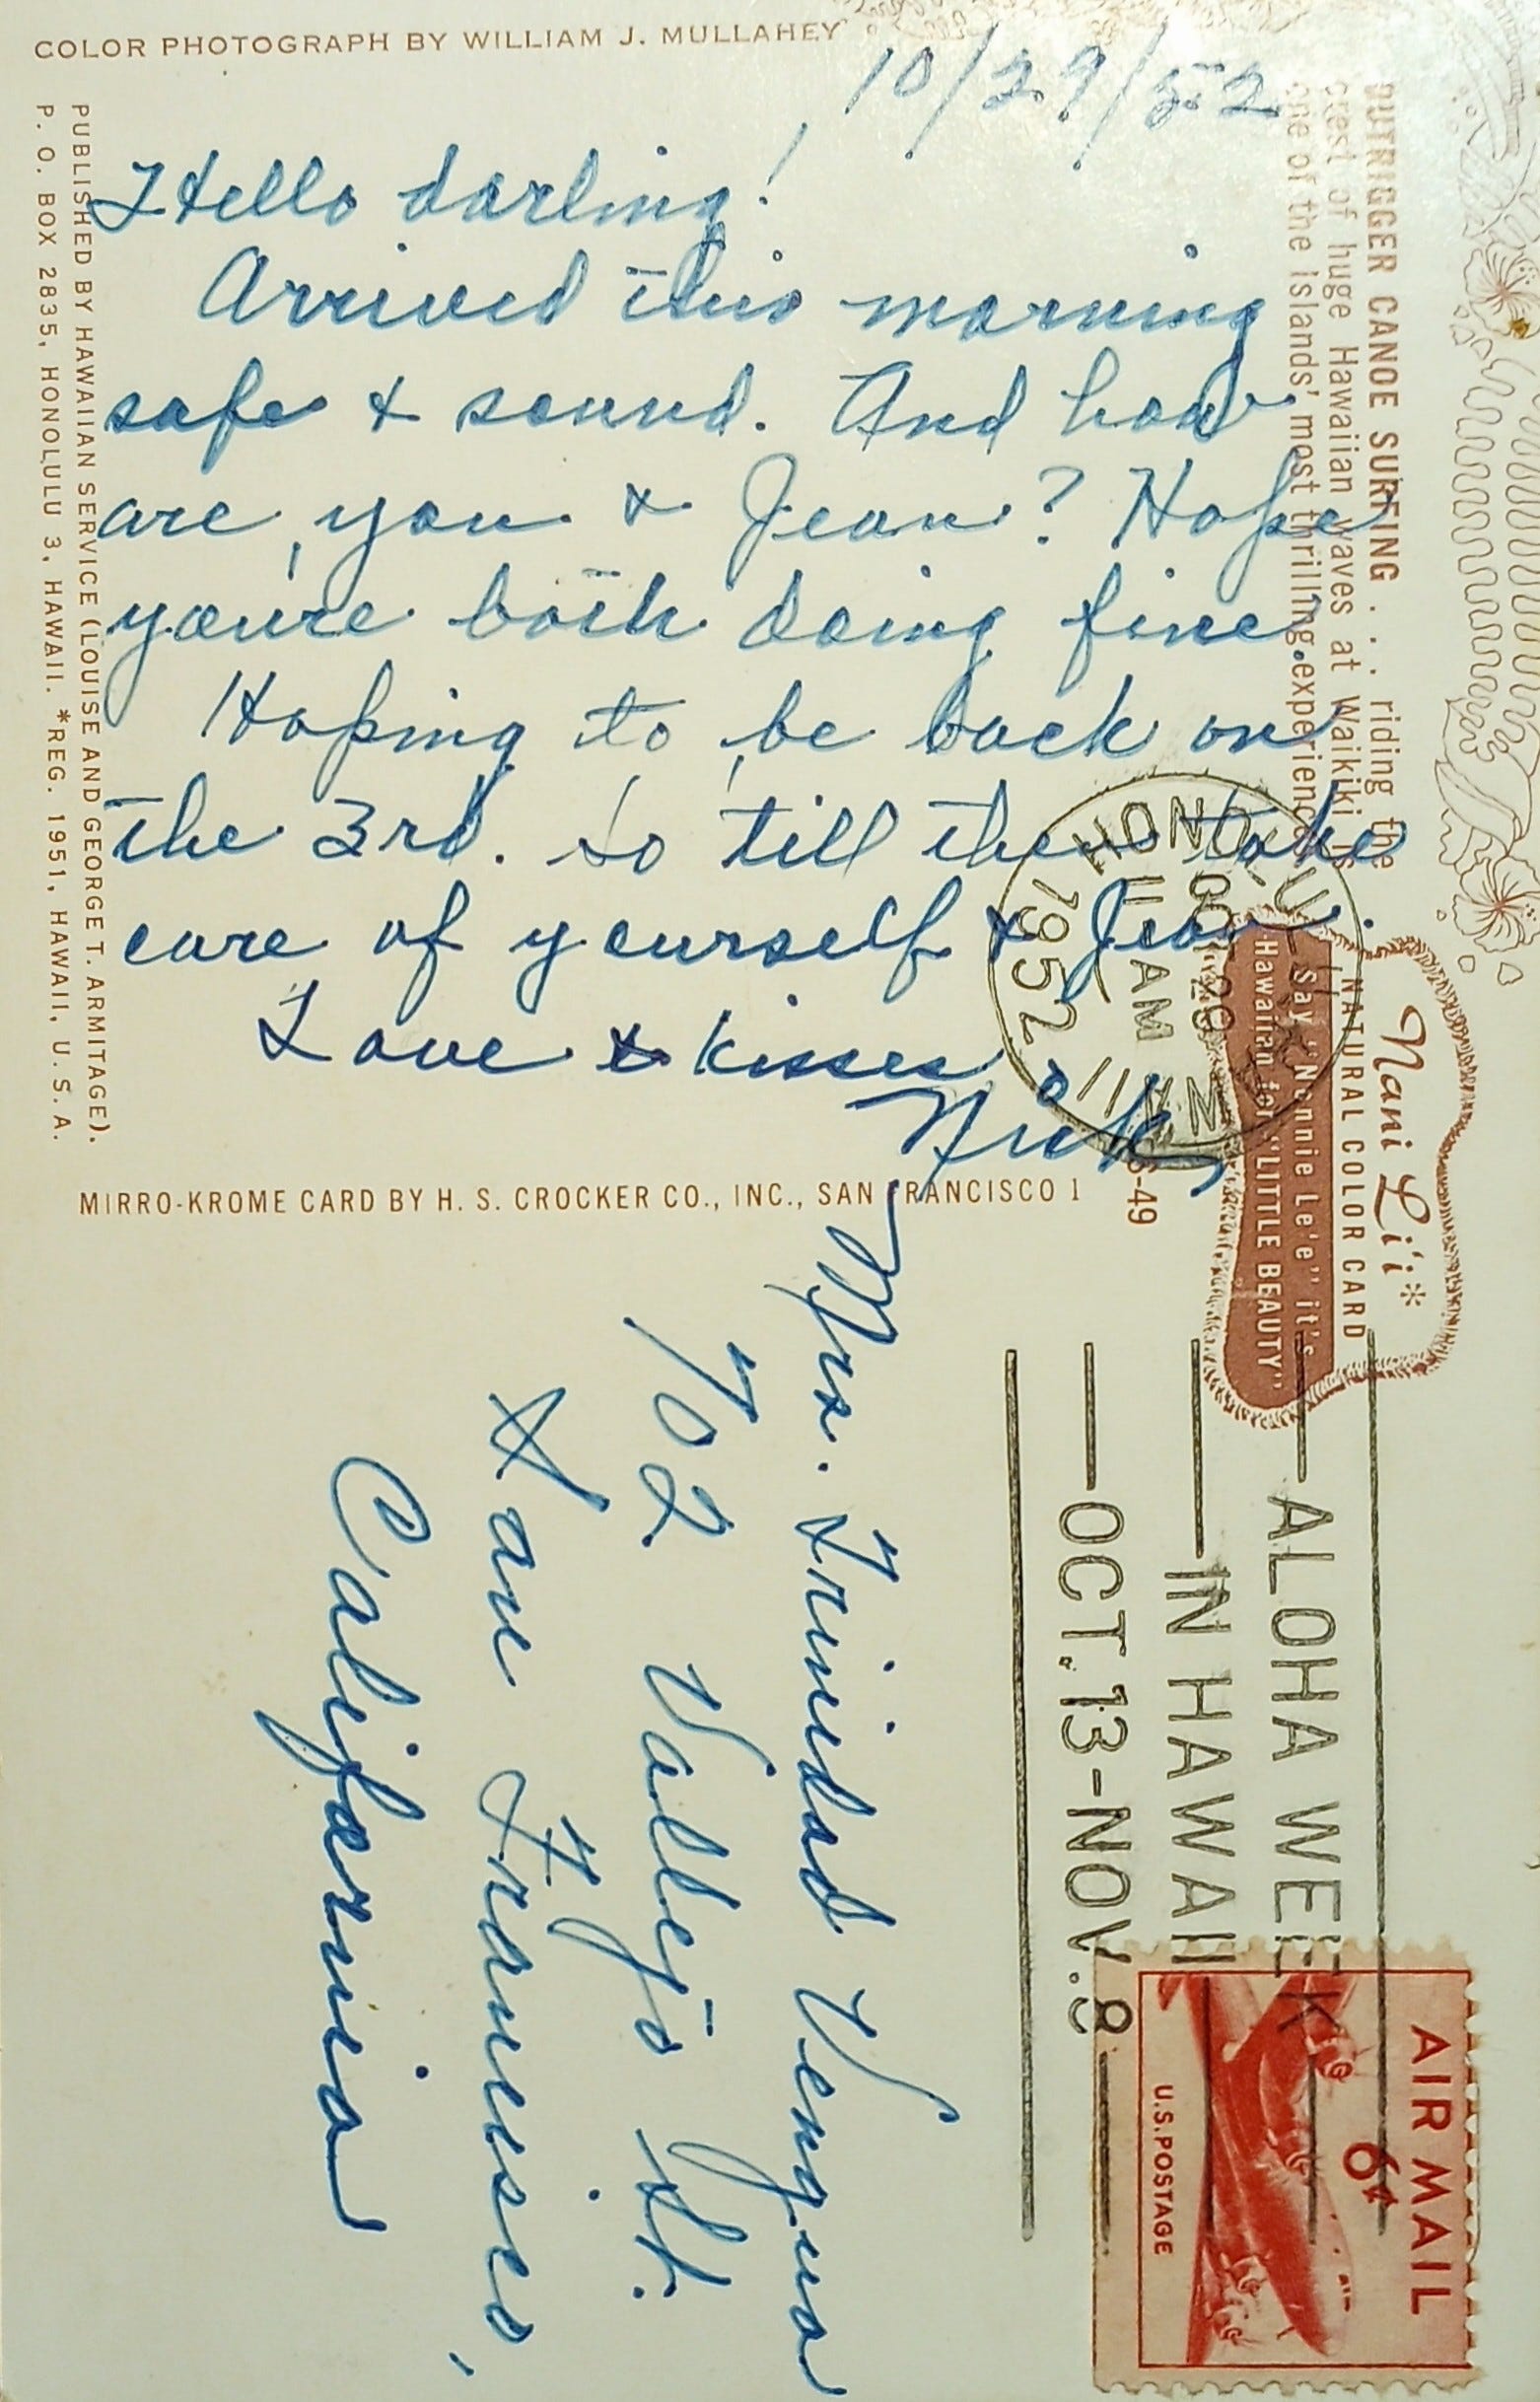 COLOR PHOTOGRAPH BY WILLIAM J. MULLAHEY
10/29/52
Hello darling!
Arrived this morning
safe & sound. And how
are you & Jean? Hope
you're both doing fine.
Hoping to be back on
the 3rd. so till then take
care of yourself & Jean.
Love & kisses
Nick
PUBLISHED BY HAWAIIAN SERVICE (LOUISE AND GEORGE T. ARMITAGE).
P. O. BOX 2835, HONOLULU 3, HAWAII. *REG. 1951, HAWAII, U. S. A.
OUTRIGGER CANOE SURFING . . . riding the
crest of huge Hawaiian waves at Waikiki is
one of the islands' most thrilling experiences
MIRRO-KROME CARD BY H. S. CROCKER CO., INC., SAN FRANCISCO 1
-49
Nani Li'i*
NATURAL COLOR CARD
Say "Nannie Le'e" it's
Hawaiian for "LITTLE BEAUTY"
HONOLULU
OCT 29
11 AM
1952
ALOHA WEEK
IN HAWAII
OCT. 13-NOV. 8
AIR MAIL
6¢
U.S. POSTAGE
Mrs. Trinidad Vengua
702 Vallejo St.
San Francisco,
California